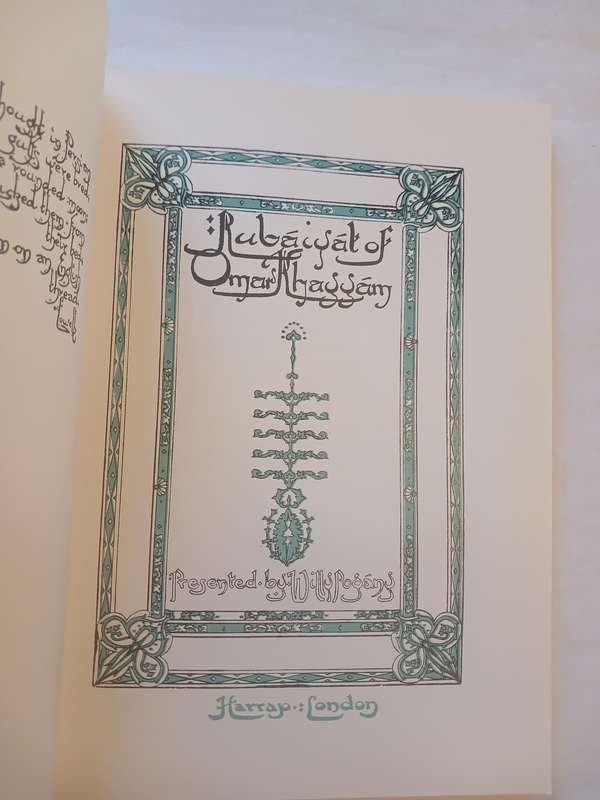 hought in Persian
gulf were bred,
rounded moons
ushed them from
their bed,
on an English
thread.
Rubáiyát of
Omar Khayyám
Presented by Willy Pogány
Harrap : London